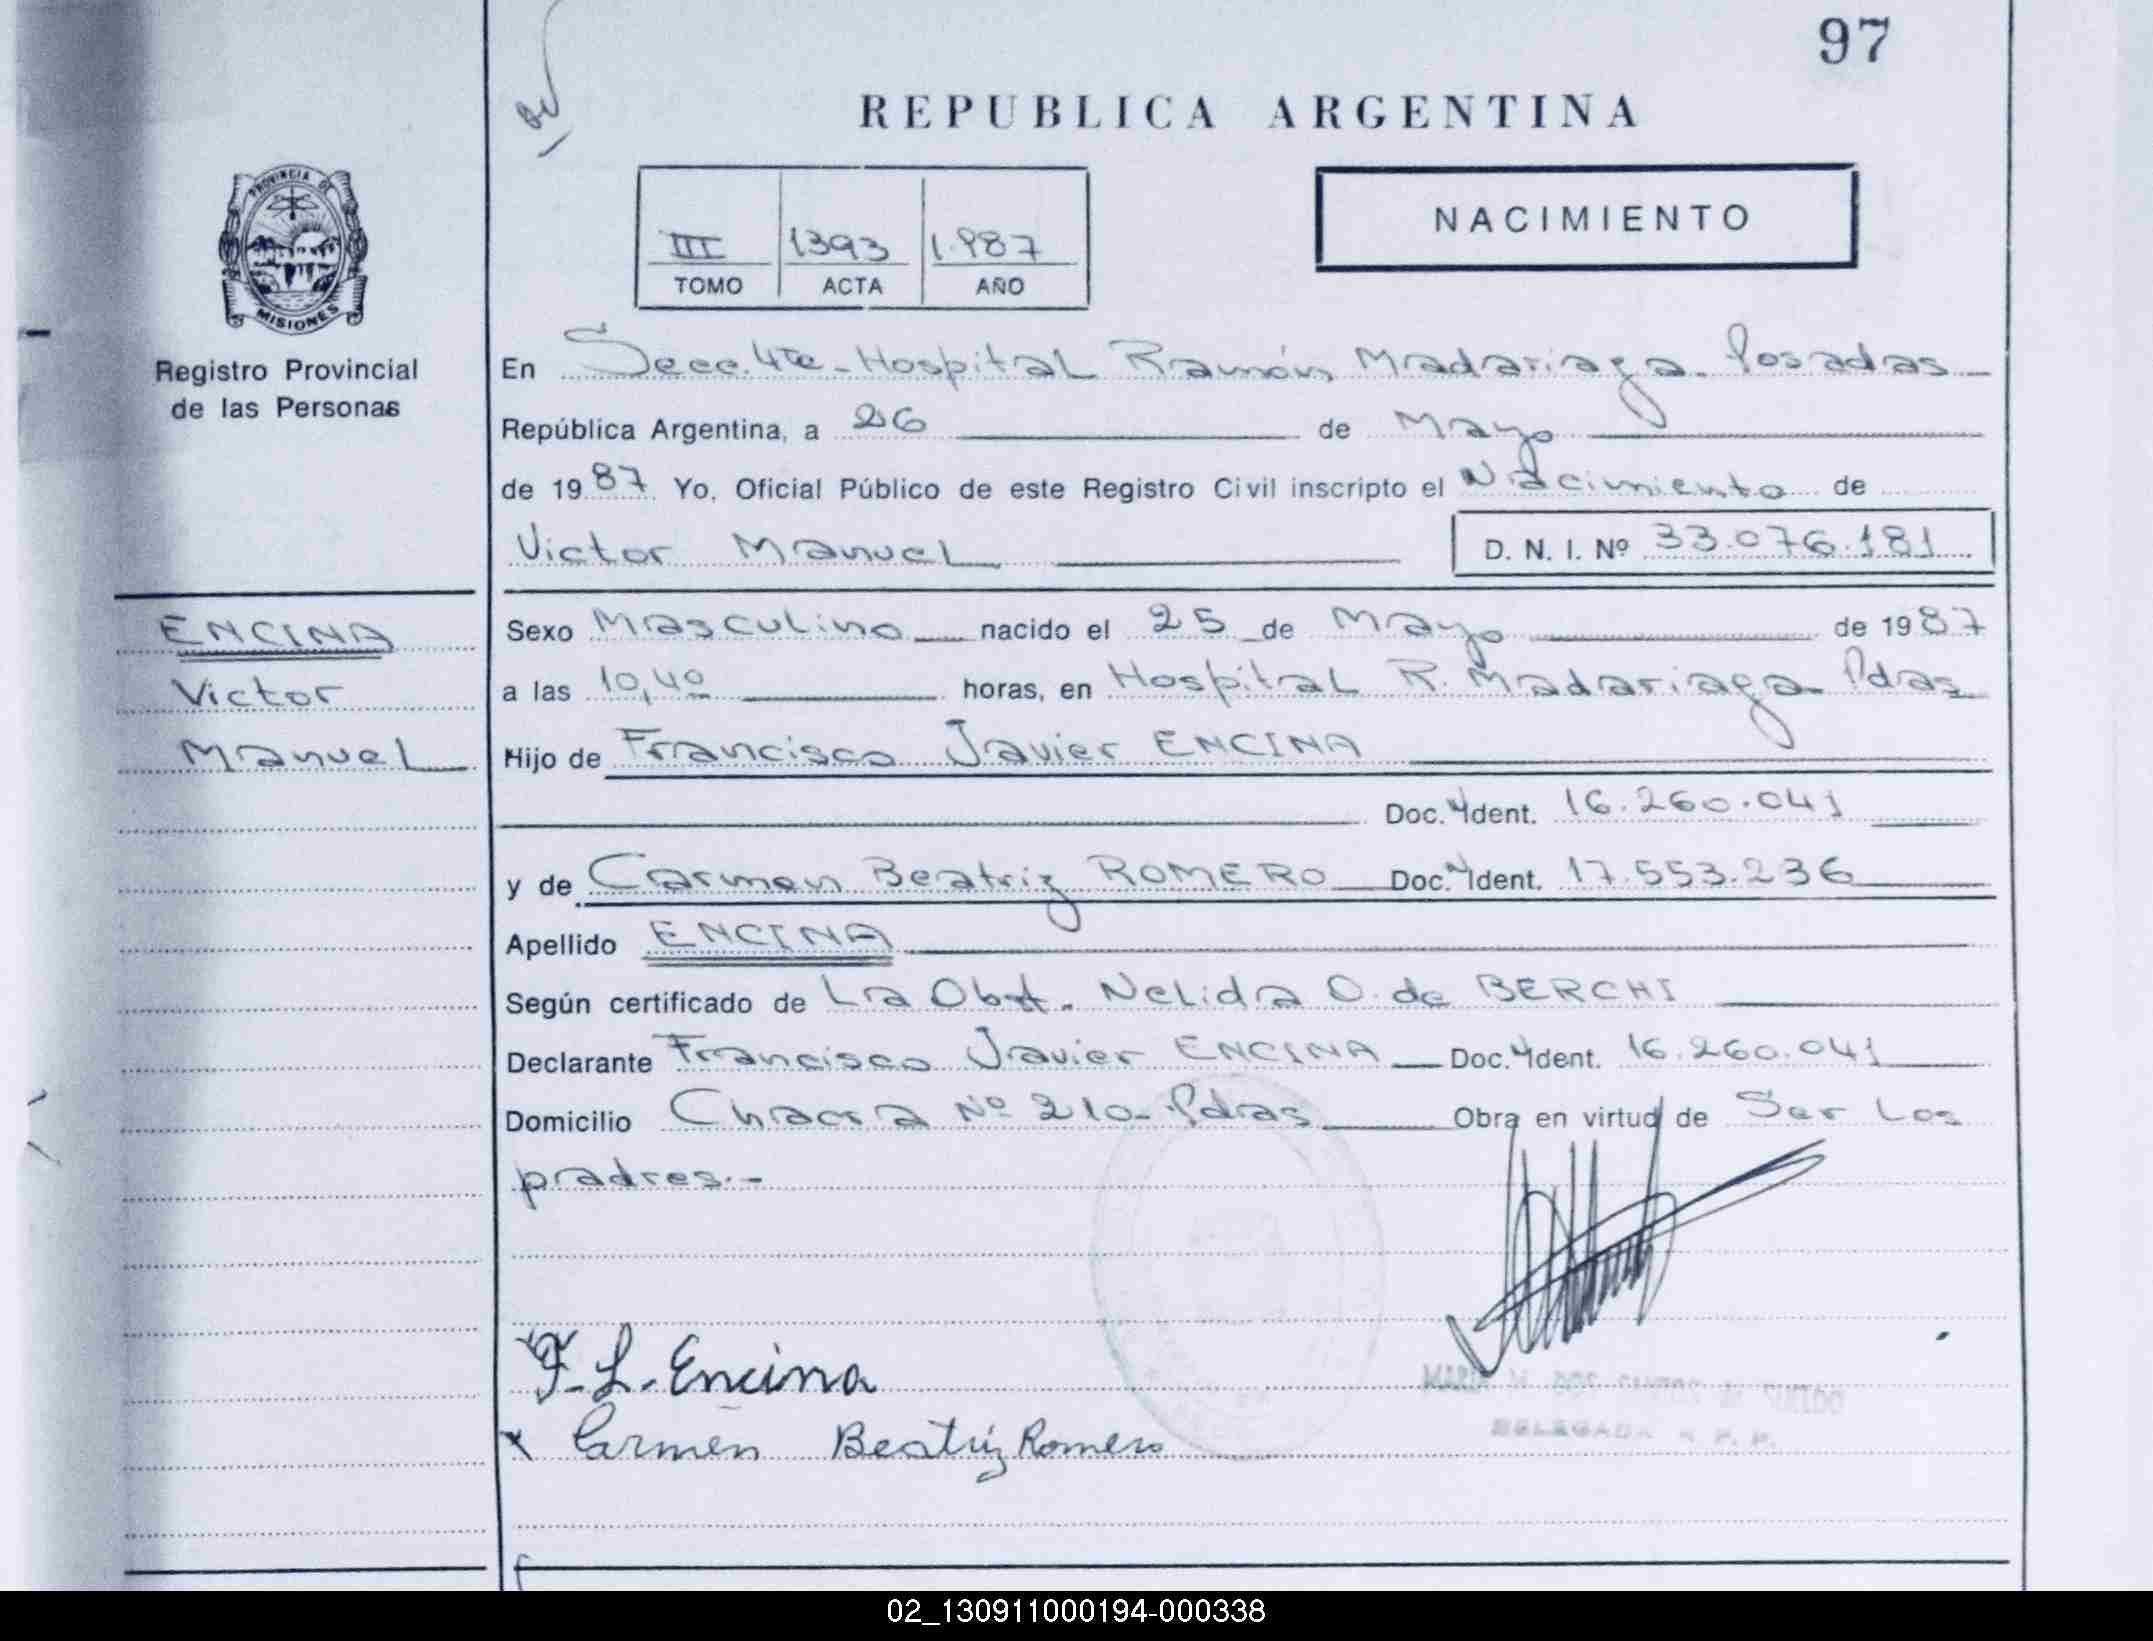 97
REPUBLICA ARGENTINA
PROVINCIA DE
MISIONES
Registro Provincial
de las Personas
III 1393 1.987
TOMO ACTA AÑO
NACIMIENTO
En Secc. 4ta - Hospital Ramón Madariaga - Posadas -
República Argentina, a 26 de Mayo
de 1987 Yo, Oficial Público de este Registro Civil inscripto el Nacimiento de
Victor Manuel D. N. I. Nº 33.076.181
ENCINA
Victor
Manuel
Sexo Masculino nacido el 25 de Mayo de 1987
a las 10,40 horas, en Hospital R. Madariaga - Pdas
Hijo de Francisco Javier ENCINA
Doc. Ident. 16.260.041
y de Carmen Beatriz ROMERO Doc. Ident. 17.553.236
Apellido ENCINA
Según certificado de La Obst. Nelida O. de BERCHI
Declarante Francisco Javier ENCINA Doc. Ident. 16.260.041
Domicilio Chacra Nº 210 - Pdas Obra en virtud de Ser Los
padres.-
Encina
Carmen Beatriz Romero
DELEGADA R. P. P.
02_130911000194-000338